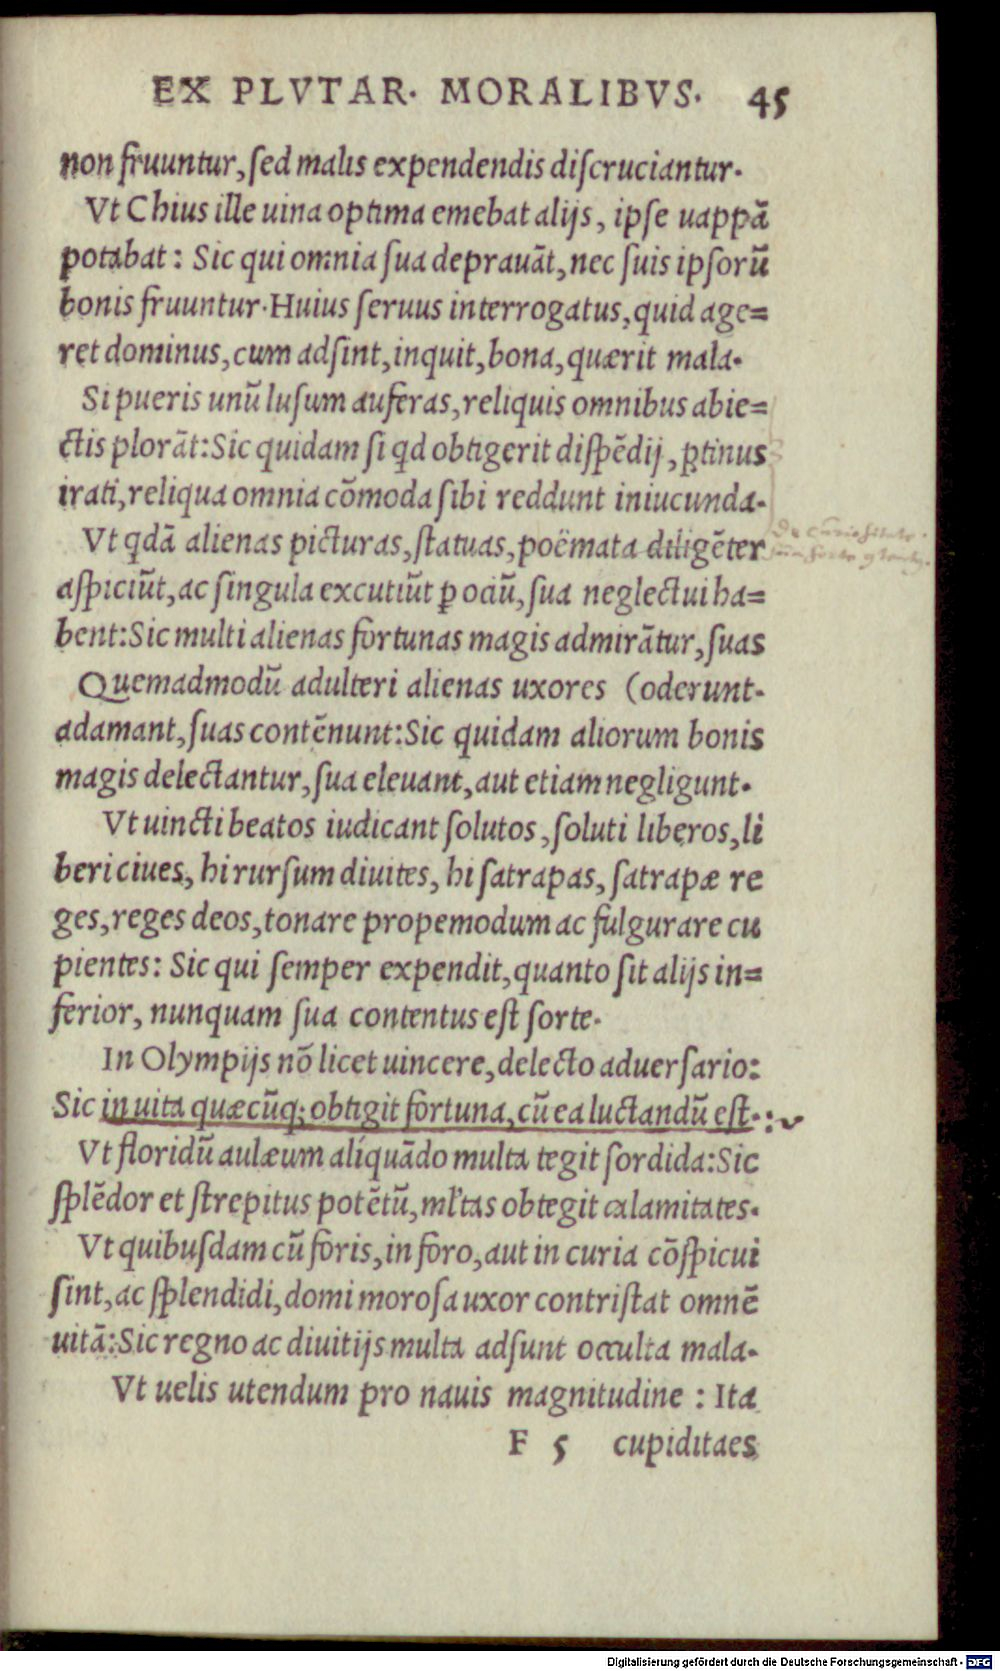 EX PLVTAR. MORALIBVS. 45
non fruuntur, ſed malis expendendis diſcruciantur.
Vt Chius ille uina optima emebat alijs, ipſe uappā
potabat: Sic qui omnia ſua deprauāt, nec ſuis ipſorū
bonis fruuntur. Huius ſeruus interrogatus, quid age=
ret dominus, cum adſint, inquit, bona, quærit mala.
Si pueris unū luſum auferas, reliquis omnibus abie=
ctis plorāt: Sic quidam ſi qd obtigerit diſpēdij, ꝓtinus
irati, reliqua omnia cōmoda ſibi reddunt iniucunda.
Vt qdā alienas picturas, ſtatuas, poëmata diligēter
aſpiciūt, ac ſingula excutiūt ꝑ ociū, ſua neglectui ha=
bent: Sic multi alienas fortunas magis admirātur, ſuas
Quemadmodū adulteri alienas uxores (oderunt.
adamant, ſuas contēnunt: Sic quidam aliorum bonis
magis delectantur, ſua eleuant, aut etiam negligunt.
Vt uincti beatos iudicant ſolutos, ſoluti liberos, li
beri ciues, hi rurſum diuites, hi ſatrapas, ſatrapæ re
ges, reges deos, tonare propemodum ac fulgurare cu
pientes: Sic qui ſemper expendit, quanto ſit alijs in=
ferior, nunquam ſua contentus eſt ſorte.
In Olympijs nō licet uincere, delecto aduerſario:
Sic in uita quæcūq; obtigit fortuna, cū ea luctandū eſt.
Vt floridū aulæum aliquādo multa tegit ſordida: Sic
ſplēdor et ſtrepitus potētū, ml'tas obtegit calamitates.
Vt quibuſdam cū foris, in foro, aut in curia cōſpicui
ſint, ac ſplendidi, domi moroſa uxor contriſtat omnē
uitā: Sic regno ac diuitijs multa adſunt occulta mala.
Vt uelis utendum pro nauis magnitudine: Ita
F 5 cupiditaes
Digitalisierung gefördert durch die Deutsche Forschungsgemeinschaft - DFG